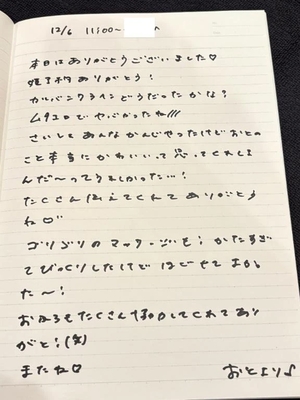 12/6 11:00~
本日はありがとうございました♡
指名ありがとう!
カルバンクラインどうだったかな?
ムチエロでやばかったね///
さいしょあんなかんじやったけどおとの
こと本当にかわいいって思ってくれてし
んだ〜ってうれしかった…!
たくさん してくれてありがとう
ね♡
ゴリゴリのマッサージも!かたすぎ
てびっくりしたけど ほぐせてよかっ
た〜!
おふろもたくさん してくれてあり
がと!(笑)
またね♡
おとより♪